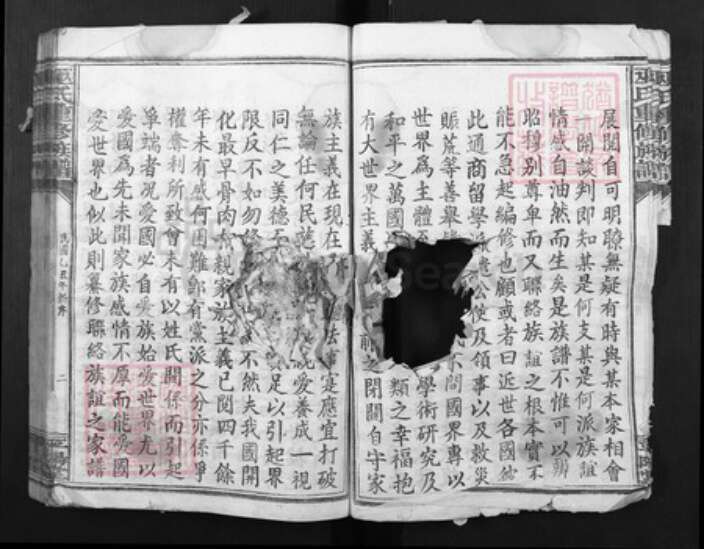 展閱自可明瞭無疑有時與某本家相會
一開談判即知某是何支某是何派族誼
情感自油然而生矣是族譜不惟可以辨
昭穆別尊卑而又聯絡族誼之根本實不
能不急起編修也顧或者曰近世各國
此通商留學 遣公使及領事以及救災
賑荒等善舉 不問國界專以
世界為主體 學術研究及
和平之萬國 類之幸福抱
有大世界主義 前之閉關自守家
族主義在現在 法 寔應宜打破
無論任何民 愛養成一視
同仁之美德 足以引起界
限反不如勿修 不然夫我國開
化最早骨肉 親家族主義已閱四千餘
年未有感何困難即有黨派之分亦係爭
權奪利所致曾未有以姓氏關係而引起
爭端者況愛國必自愛族始愛世界尤以
愛國為先未聞家族感情不厚而能愛國
愛世界也似此則纂修聯絡族誼之家譜
氏重修族譜
民國乙丑年新序
二
氏重修族譜